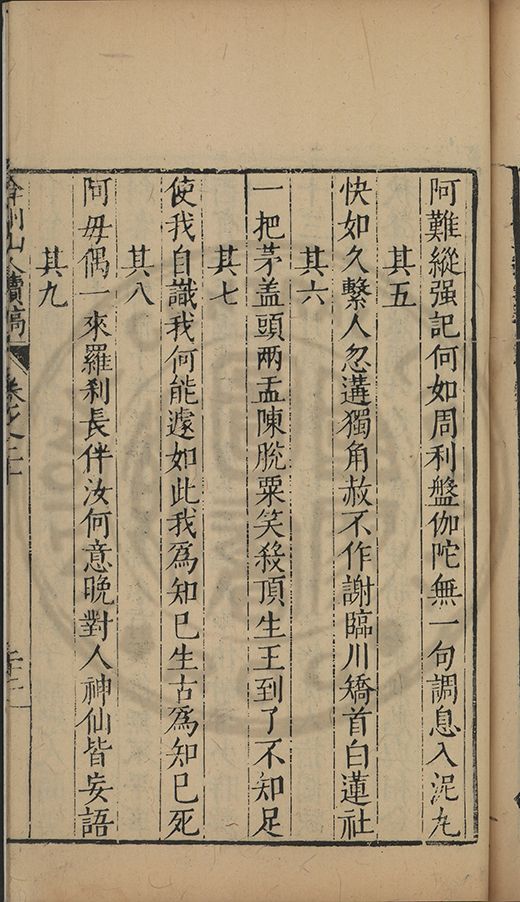 阿難縱强記何如周利盤伽陀無一句調息入泥丸
其五
快如久繫人忽遘獨角赦不作謝臨川矯首白蓮社
其六
一把茅盖頭兩盂陳脫粟笑殺頂生王到了不知足
其七
使我自識我何能遽如此我爲知巳生古爲知巳死
其八
阿毋偶一來羅刹長伴汝何意晚對人神仙皆妄語
其九
弇州山人續稿 卷之二十